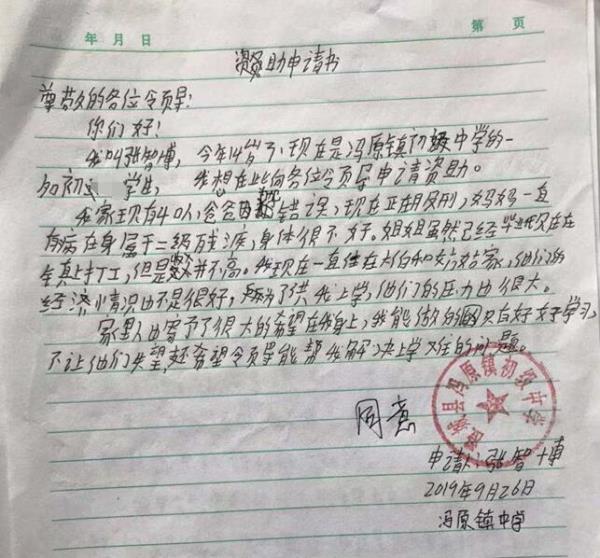 年 月 日 第 页
资助申请书
尊敬的各位领导:
你们好!
我叫张智博,今年14岁了,现在是冯原镇初级中学的一
名初 学生,我想在此向各位领导申请资助。
我家现有4口人,爸爸因 错误,现在正在服刑,妈妈一直
有病在身属于二级残疾,身体很不好。姐姐虽然已经毕业现在在
镇上打工,但是 并不高。我现在一直住在大伯和姑姑家,他们的
经济情况也不是很好,为了供我上学,他们的压力也很大。
家里人寄予了很大的希望在我身上,我能做的 只有好好学习,
不让他们失望,还希望领导能帮我解决上学难的问题。
同意
县冯原镇初级中学
申请人:张智博
2019年9月26日
冯原镇中学